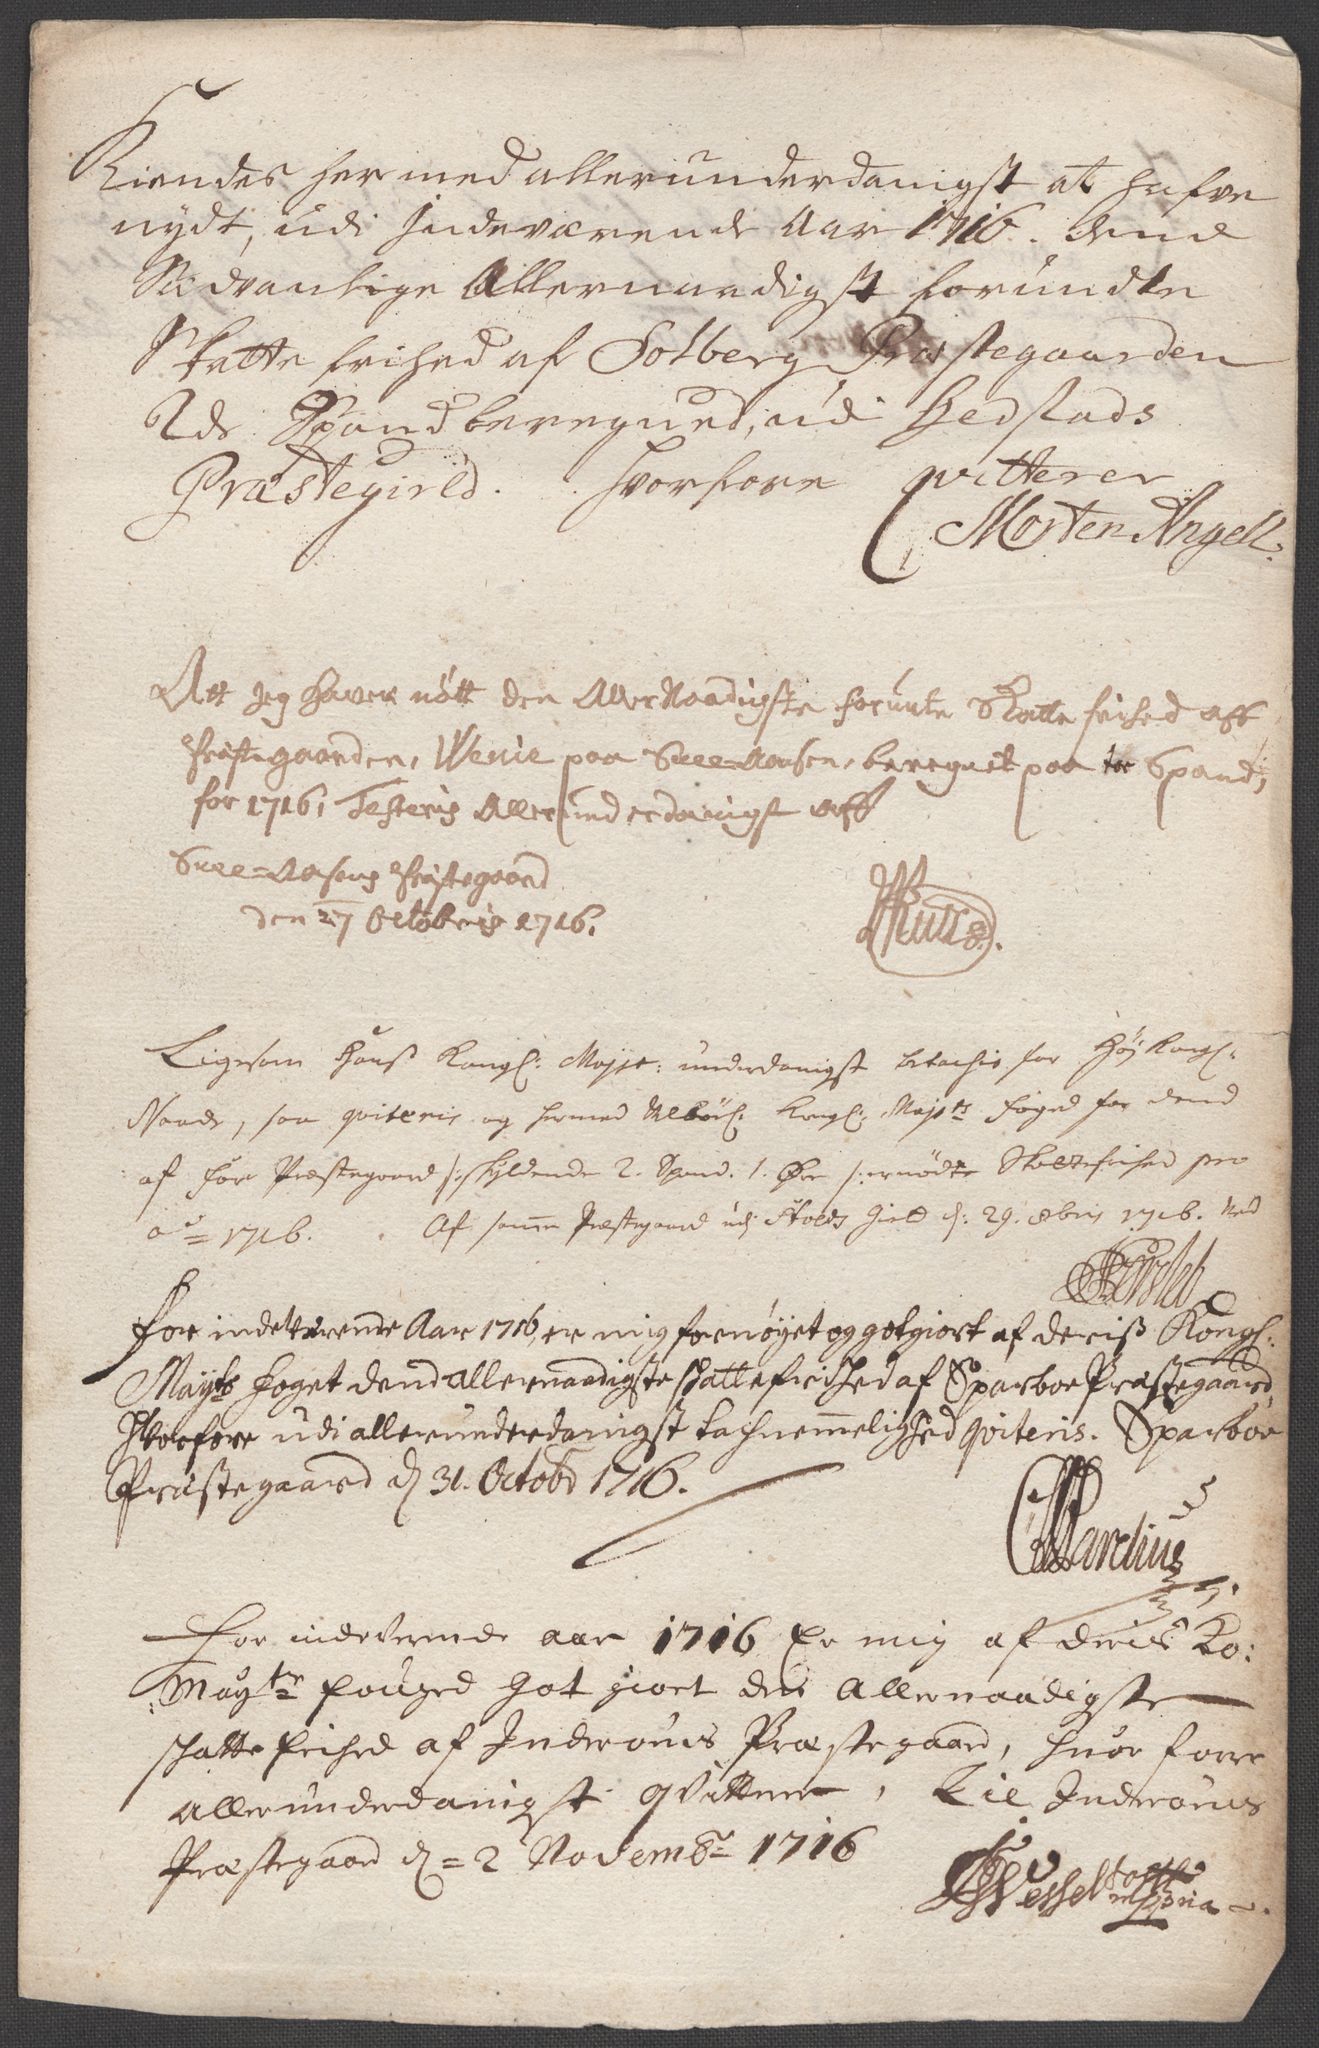 Kiendes hermed allerunderdanigst at hafve
nydt, udi Indeværende Aar 1716. dend
Sædvanlige Allernaadigst forundte
Skatte frihed af Solberg Præstegaarden
2de Spand beregned, udi Bedstads
Præstegield. hvorfore qvitterer
Morten Angell.
Att Jeg haver nött den AllerNaadigste forunte Skatte frihed aff
Præstegaarden, Wenie paa Snee-Aasen, beregnet paa Spand,
for 1716, Testeris Allerunderdanigst aff
Snee-Aasens Præstegaard
den 27 Octobris 1716.
Ligesom Hans Kongl: Mayst: underdanigst betachis for Høy Kongl.
Naade, saa qviteris og hermed Kongl: Mayts Foged for dend
af Før Præstegaard /: skyldende 2. Spand. 1. Øre :/ nødte Skattefrihed pro
ao = 1716. Af samme Præstegaard udj Stods Gield d: 29. 8bris 1716. Ved
For indeværende Aar 1716, er mig fornøyet og gotgiort af deris Kongl:
Mayts foget dend allernaadigste skattefridhed af Sparboe Præstegaard,
Hvorfore udi allerunderdanigst tachnemmelighed qviteris. Sparboe
Præstegaard d 31. Octobr 1716.
For indeværende aar 1716 Er mig af deris Ko:
May:ts fouged Got giort den Allernaadigste
skatte frihed af Inderøens Præstegaard, huor forre
allerunderdanigst qvitterer, Inderøens
Præstegaard d = 2 Novembr 1716
Wessel
mpria